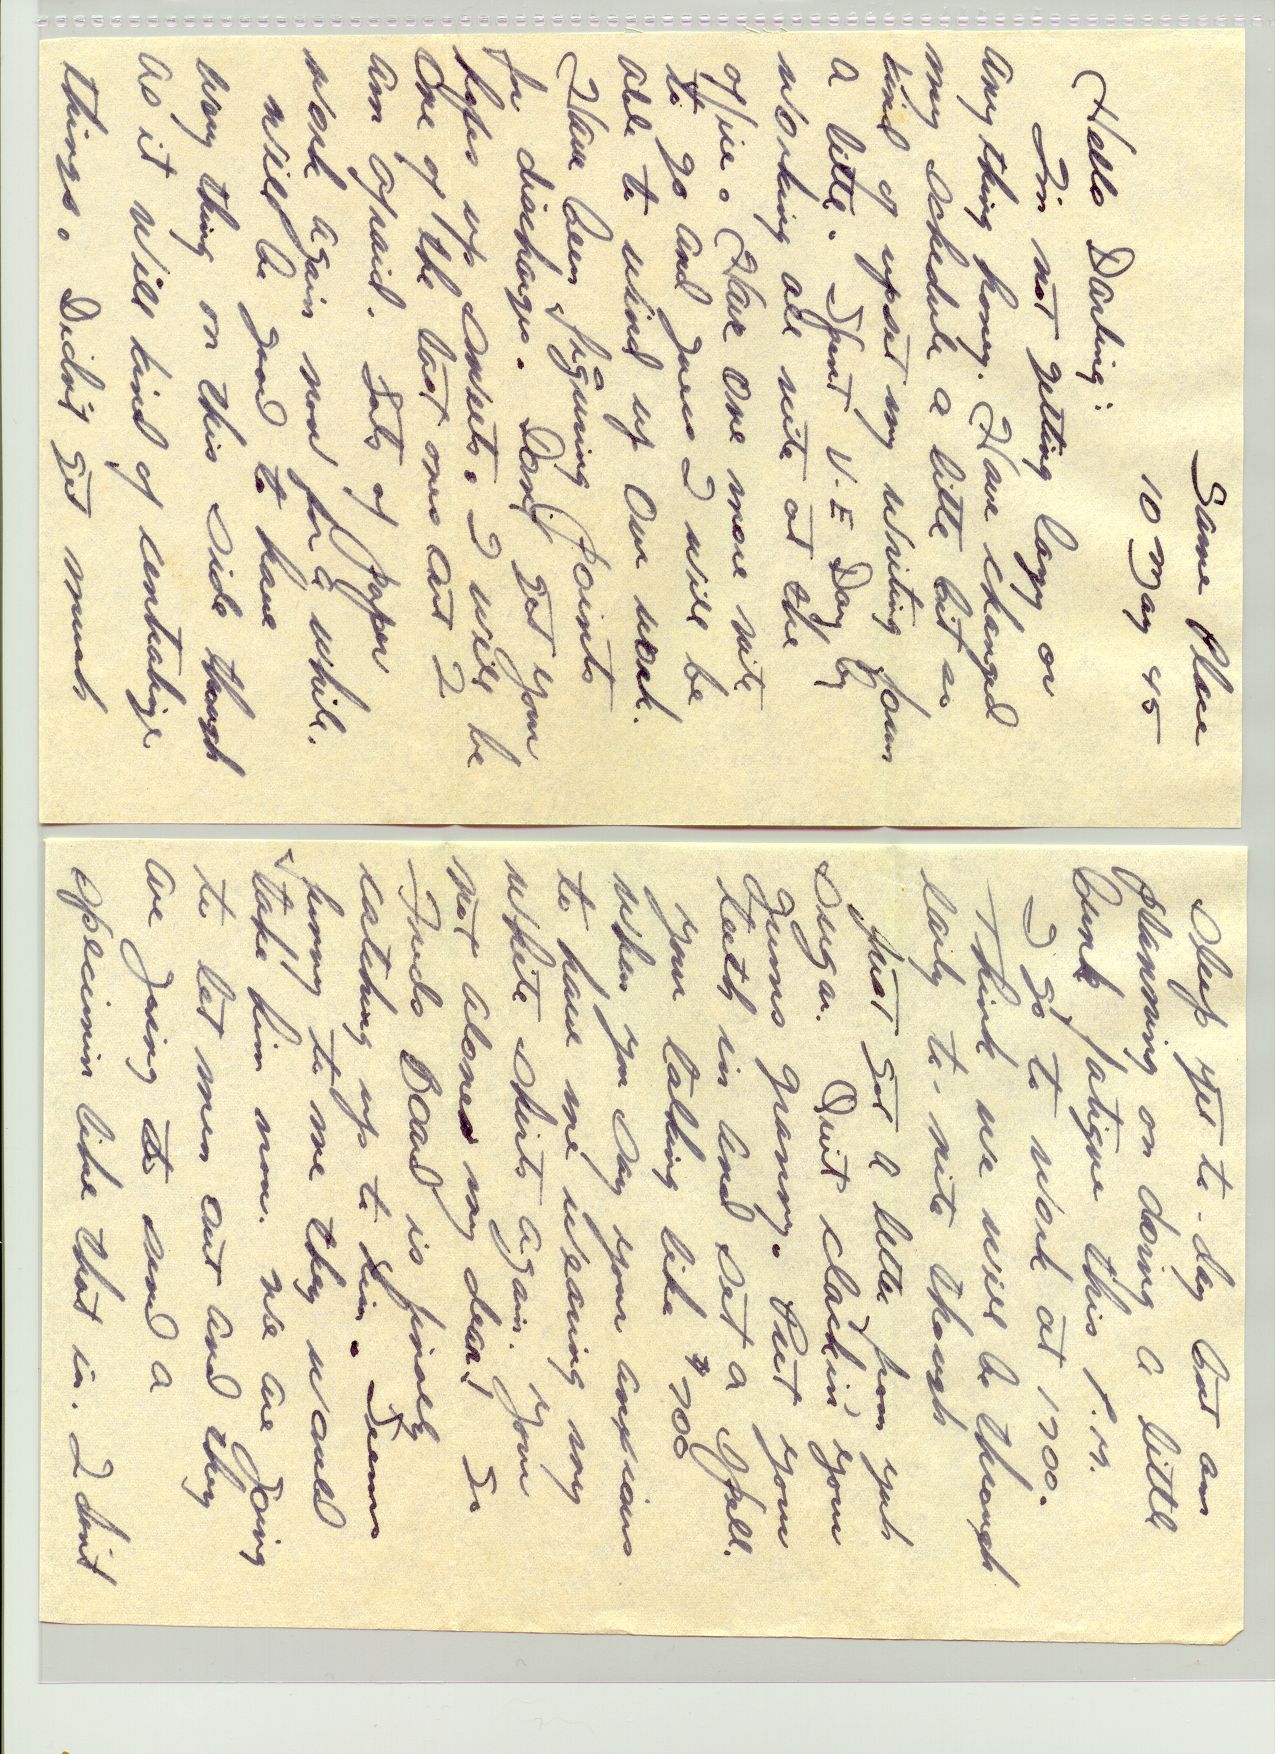 Same Place
10 May 45
Hello Darling:
I'm not getting lazy or
anything honey. Have changed
my schedule a little bit so
kind of upset my writing hours
a little. Spent V-E Day by
working all nite at the
office. Have one more nite
to go and guess I will be
able to wind up our work.
Have been figuring points
for discharge. Don't get your
hopes up sweets. I will be
one of the last ones out I
am afraid. Lots of paper
work again now for a while.
Will be good to have
every thing on this side though
as it will kind of centralize
things. Didn't get much
sleep yet to-day but am
planning on doing a little
bunk fatigue this P.M.
I go to work at 1700.
Think we will be through
early to-nite though
Just got a letter from yuh
sugar. Quit clackin' your
gums granny. Put your
teeth in and set a spell.
Your talking like > 700
when you say your anxious
to have me wearing my
white shirts again. Your
not alone my dear! So
Freds Board is finaly
catching up to him. Seems
funny to me they would
take him now. We are going
to let men out and they
are going to send a
specimin like that in. I don't